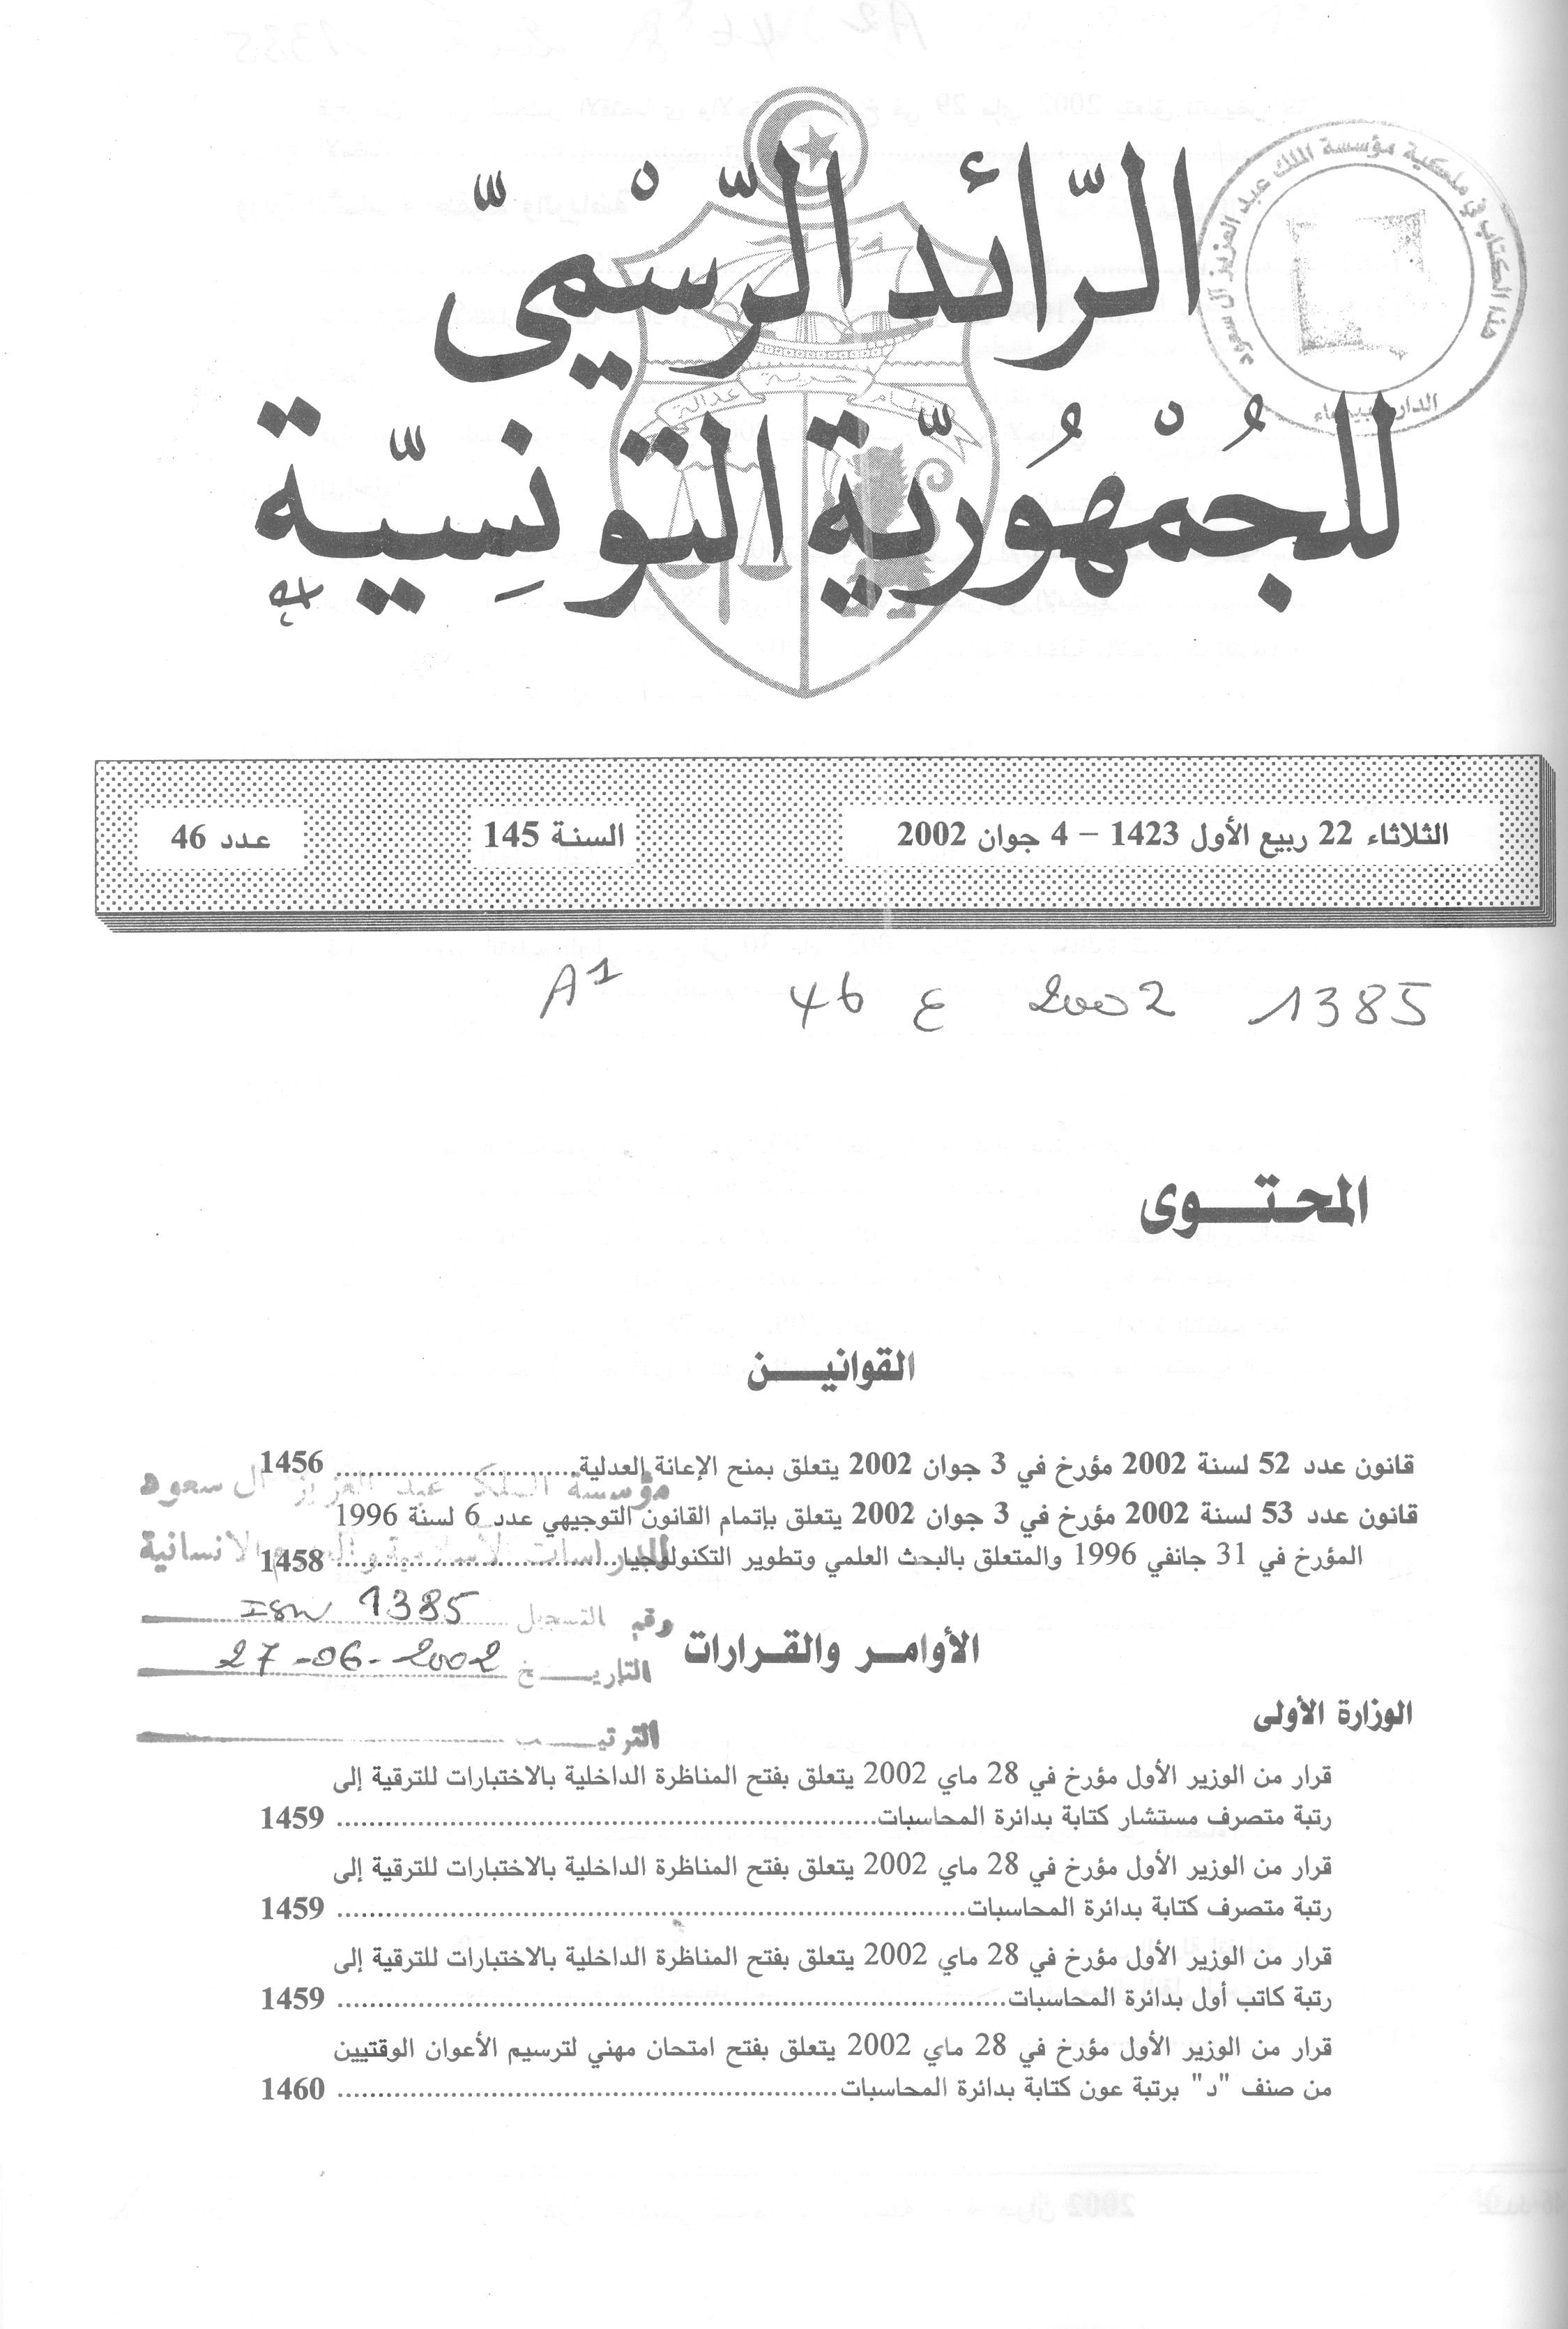 الرّائد الرّسْمِيّ
للجُمْهُوريّة التّونِسيّة
نظام
حرية
عدالة
هذا الكتاب في ملكية مؤسسة الملك عبد العزيز آل سعود
الدار البيضاء
الثلاثاء 22 ربيع الأول 1423 – 4 جوان 2002
السنة 145
عدد 46
1385 2002 ع 46 A1
المحتوى
القوانين
قانون عدد 52 لسنة 2002 مؤرخ في 3 جوان 2002 يتعلق بمنح الإعانة العدلية 1456
قانون عدد 53 لسنة 2002 مؤرخ في 3 جوان 2002 يتعلق بإتمام القانون التوجيهي عدد 6 لسنة 1996
المؤرخ في 31 جانفي 1996 والمتعلق بالبحث العلمي وتطوير التكنولوجيا 1458
مؤسسة الملك عبد العزيز آل سعود
للدراسات الإسلامية والعلوم الانسانية
رقم التسجيل 1385
التاريخ 27-06-2002
الترتيب
الأوامر والقرارات
الوزارة الأولى
قرار من الوزير الأول مؤرخ في 28 ماي 2002 يتعلق بفتح المناظرة الداخلية بالاختبارات للترقية إلى
رتبة متصرف مستشار كتابة بدائرة المحاسبات 1459
قرار من الوزير الأول مؤرخ في 28 ماي 2002 يتعلق بفتح المناظرة الداخلية بالاختبارات للترقية إلى
رتبة متصرف كتابة بدائرة المحاسبات 1459
قرار من الوزير الأول مؤرخ في 28 ماي 2002 يتعلق بفتح المناظرة الداخلية بالاختبارات للترقية إلى
رتبة كاتب أول بدائرة المحاسبات 1459
قرار من الوزير الأول مؤرخ في 28 ماي 2002 يتعلق بفتح امتحان مهني لترسيم الأعوان الوقتيين
من صنف "د" برتبة عون كتابة بدائرة المحاسبات 1460